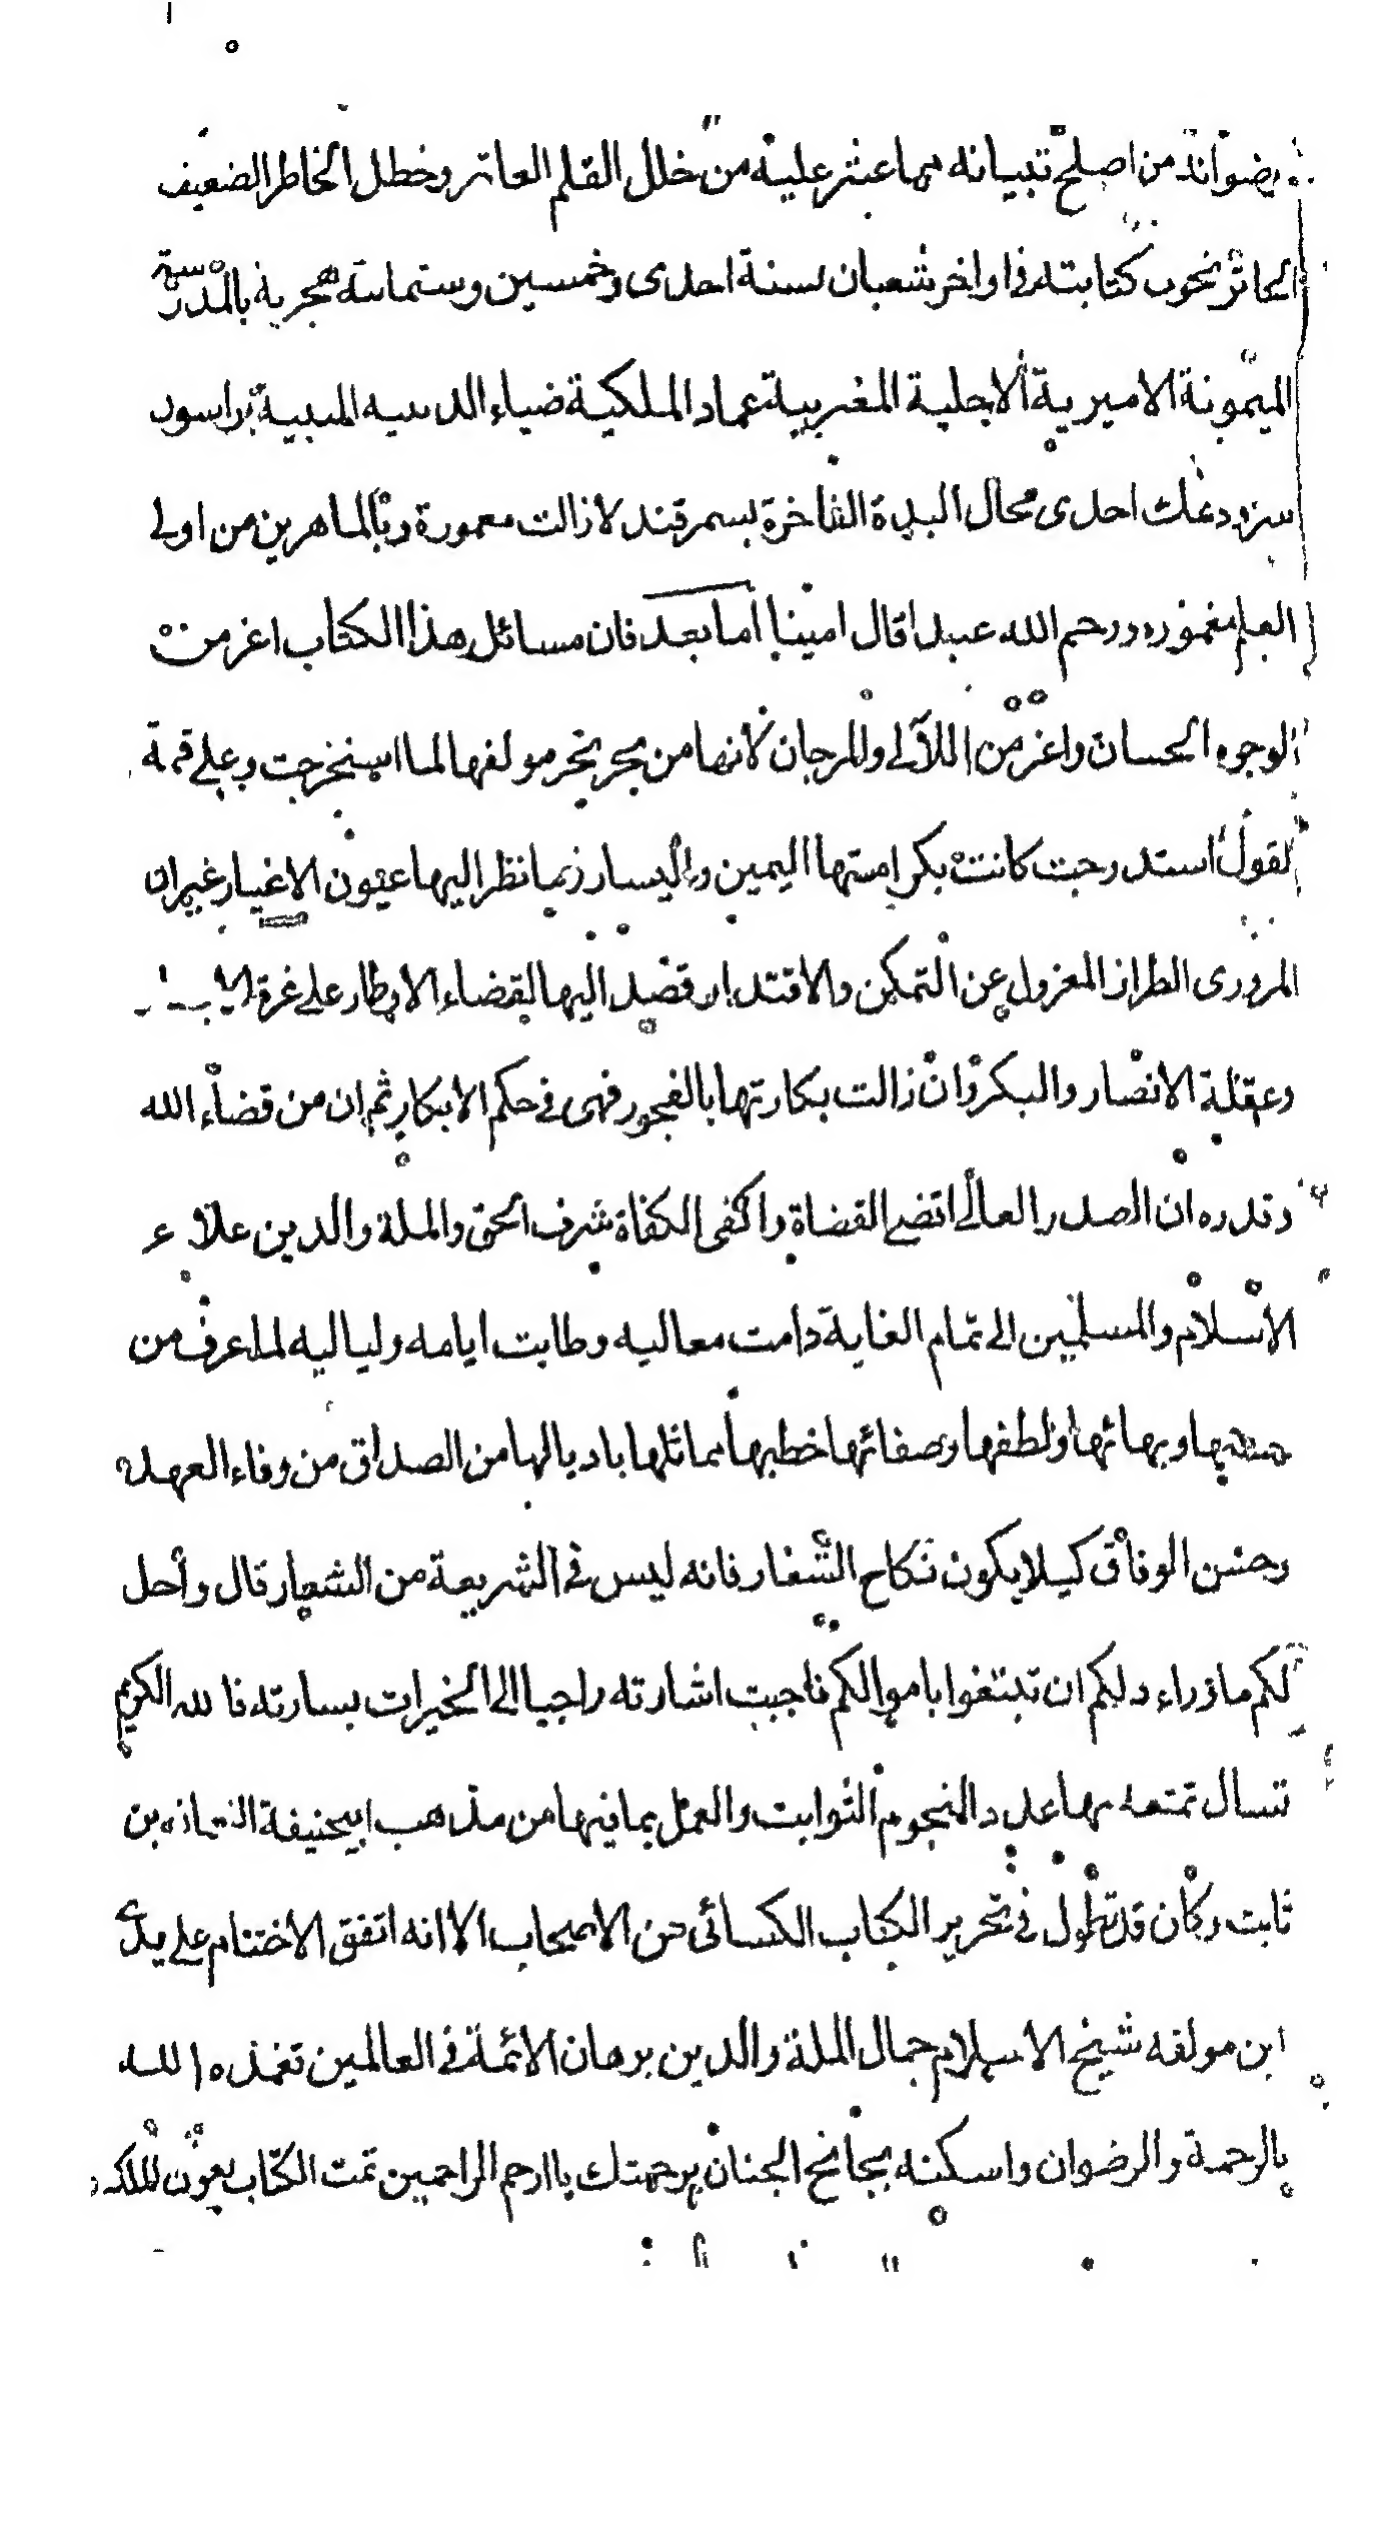 رضوانه من اصلح تبيانه مهما عثر عليه من خلل القلم العاثر وخطل الخاطر الضعيف
الحائر نحوت كتابته في اواخر شعبان لسنة احدى وخمسين وستمائة هجرية بالمدرسة
الميمونة الاميرية الاجلية المغربية عماد الملكية ضياء المبنية براس
احدى محال البلدة الفاخرة بسمرقند لا زالت معمورة وبالماهرين من اولي
العلم مغمورة ورحم الله عبدا قال امينا اما بعد فان مسائل هذا الكتاب اغر من
الوجوه الحسان واعز من اللآلي والمرجان لانها من بحر بحر مولفها لما استخرجت وعلى قمة
لقول استدرجت كانت بكرا مستها اليمين واليسار زيما نظر اليها عيون الاغيار غير ان
المروري الطراز المعزول عن التمكن والاقتدار قصد اليها لقضاء الاوطار على غرة
وعقلة الانصار والبكر وان زالت بكارتها بالفجور فهى في حكم الابكار ثم ان من قضاء الله
وقدره ان الصدر العالى اقضى القضاة واكفى الكفاة شرف الحق والملة والدين علاء
الاسلام والمسلمين الى تمام الغاية دامت معاليه وطابت ايامه ولياليه لما عرف من
حسنها وبهائها ولطفها وصفائها خطبها بما ثلها باديا لها من الصداق من وفاء العهد
وحسن الوفاق كيلا يكون نكاح الشغار فانه ليس في الشريعة من الشعار قال واحل
لكم ما وراء ذلكم ان تبتغوا باموالكم فاجبت اشارته راجيا الى الخيرات بسارته فالله الكريم
نسال تمتعه بها عدد النجوم الثوابت والعمل بما فيها من مذهب ابيحنيفة النعمان بن
ثابت وكان قد تطول في تحرير الكتاب الكسائى من الاصحاب الا انه اتفق الاختتام على يدى
ابن مولفه شيخ الاسلام جمال الملة والدين برهان الائمة في العالمين تغمذه الله
بالرحمة والرضوان واسكنه بجانح الجنان برحمتك يا ارحم الراحمين تمت الكتاب بعون الملك